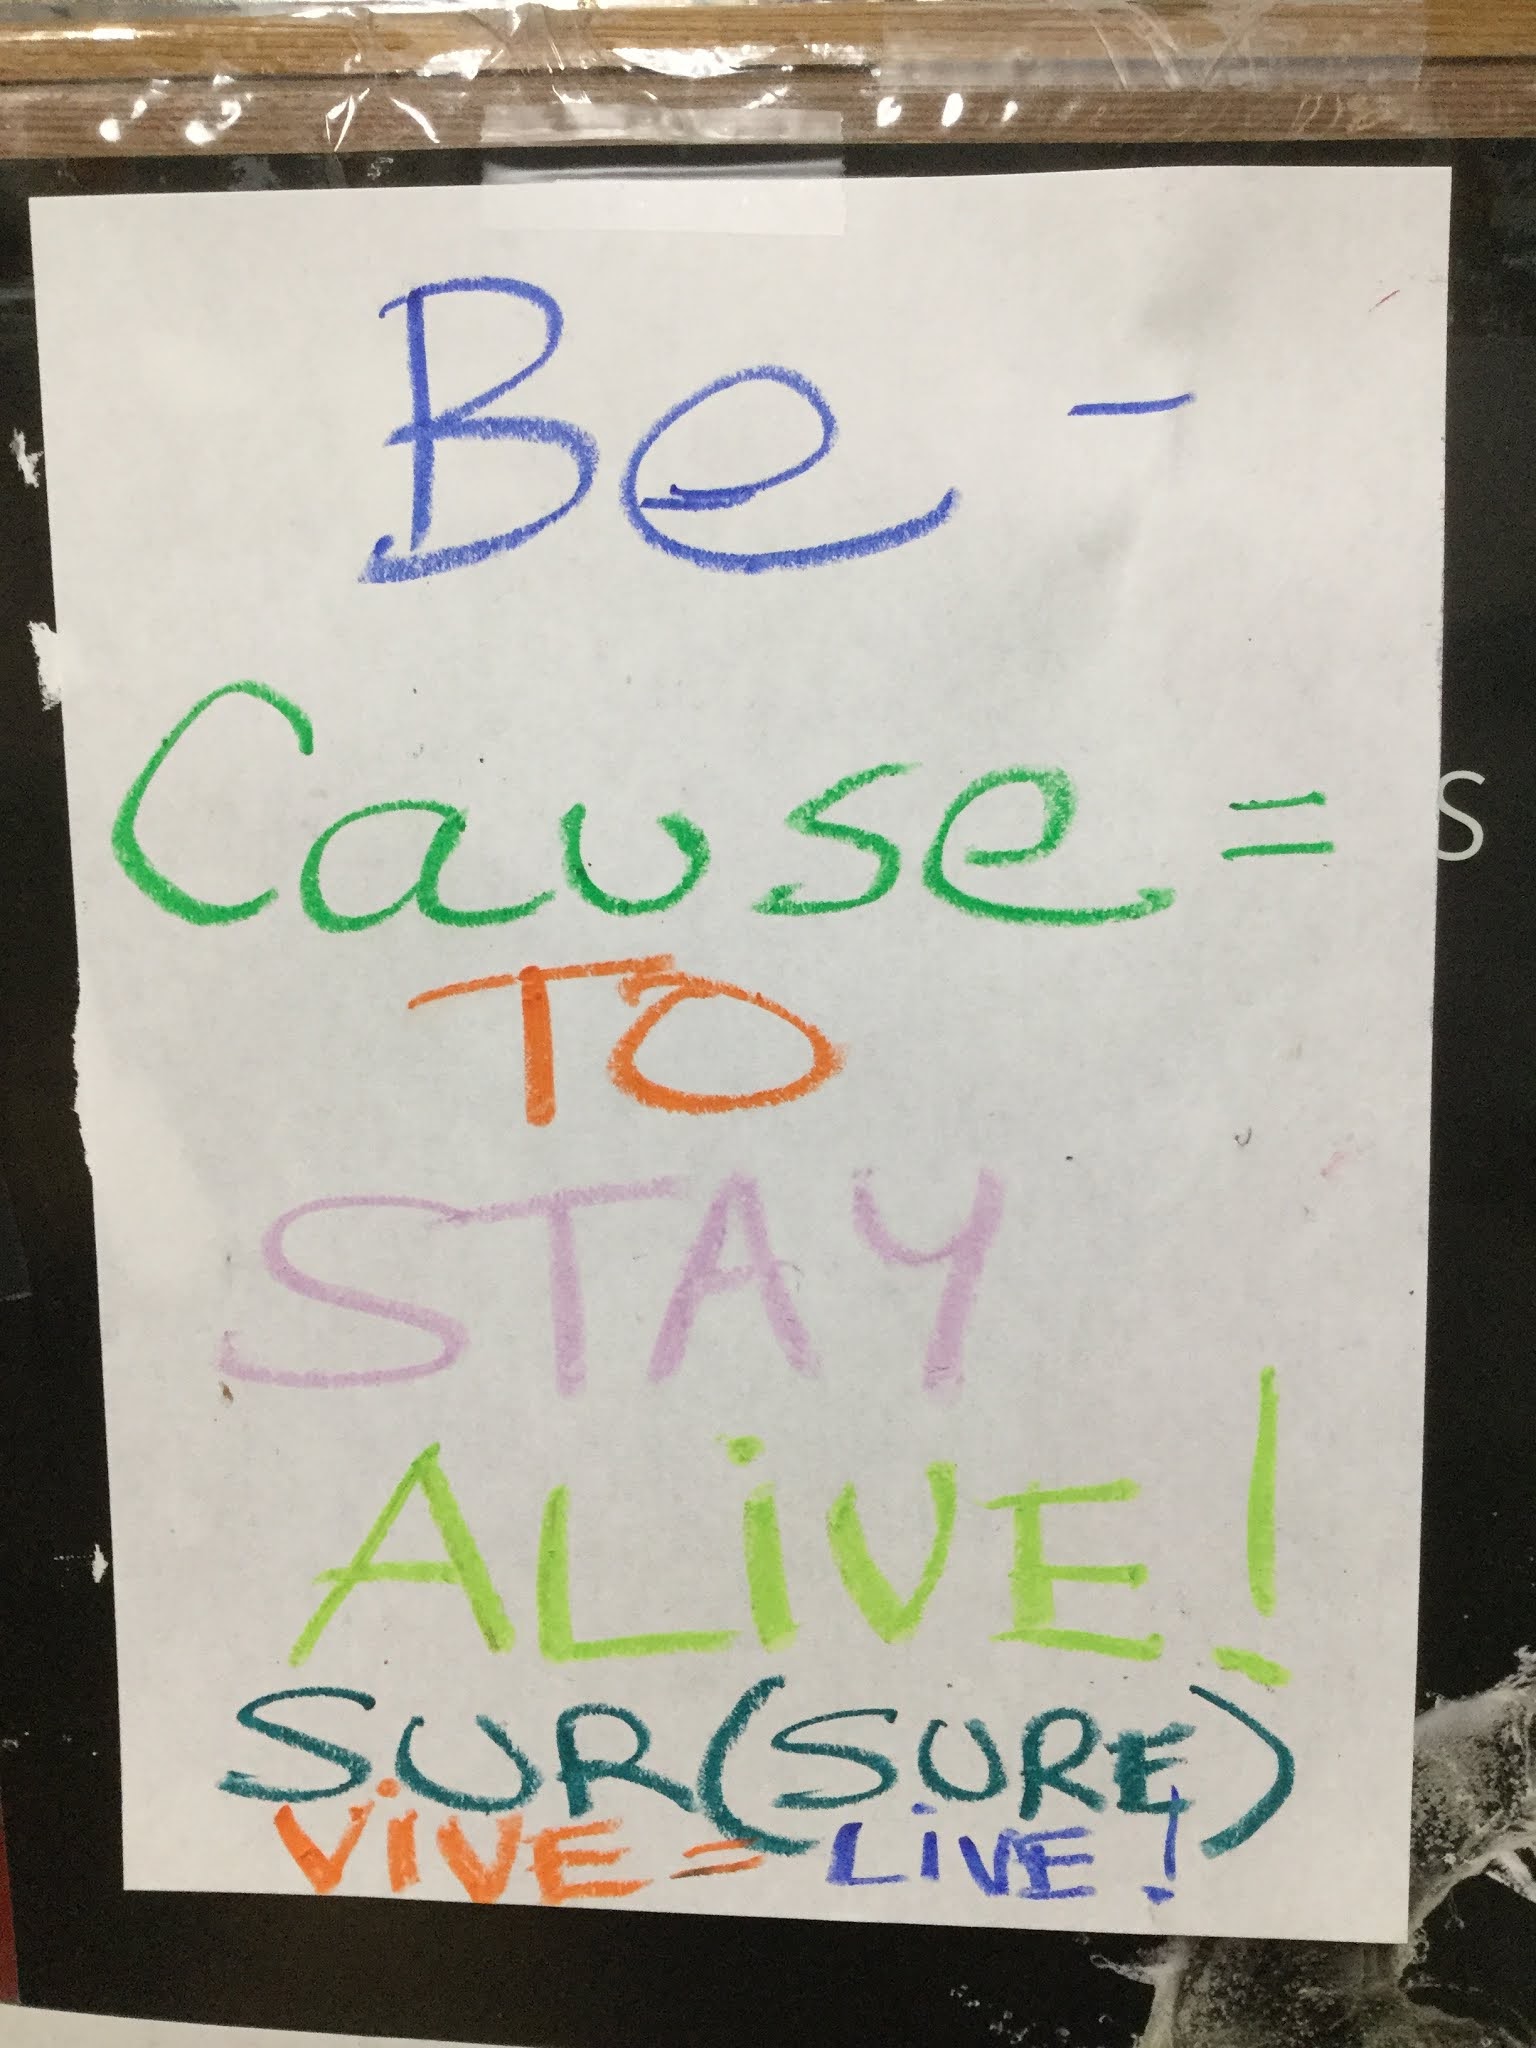 Be -
Cause =
TO
STAY
ALiVE!
SUR(SURE)
ViVE = LiVE!
S